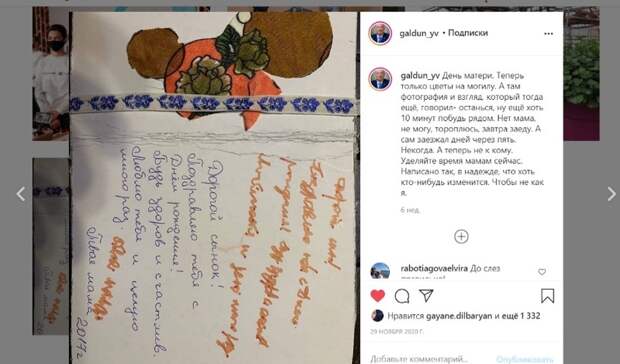 galdun_yv • Подписки
galdun_yv День матери. Теперь
только цветы на могилу. А там
фотография и взгляд, который тогда
ещё, говорил- останься, ну ещё хоть
10 минут побудь рядом. Нет мама,
не могу, тороплюсь, завтра заеду. А
сам заезжал дней через пять.
Некогда. А теперь не к кому.
Уделяйте время мамам сейчас.
Написано так, в надежде, что хоть
кто-нибудь изменится. Чтобы не как
я.
6 нед.
rabotiagovaelvira До слез
Нравится gayane.dilbaryan и ещё 1 332
29 НОЯБРЯ 2020 Г.
Добавьте комментарий...
Опубликовать
Дорогой сынок!
Поздравляю тебя с
Днём рождения!
Будь здоров и счастлив.
Люблю тебя и целую
много раз.
Твоя мама 2017г